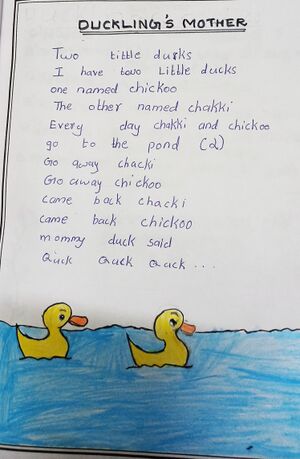 DUCKLING'S MOTHER
Two little ducks
I have two Little ducks
one named chickoo
The other named chakki
Every day chakki and chickoo
go to the pond (2)
Go away chacki
Go away chickoo
came back chacki
came back chickoo
mommy duck said
Quck Quck Quck ...